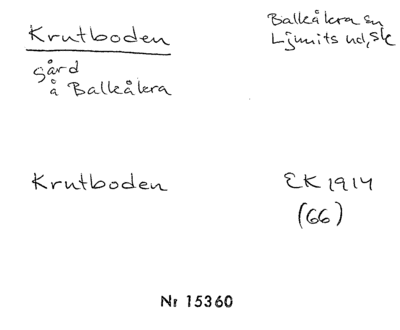 Krutboden
Balkåkra sn
Ljunits hd, Sk
gård
å Balkåkra
Krutboden
EK 1914
(66)
Nr 15360